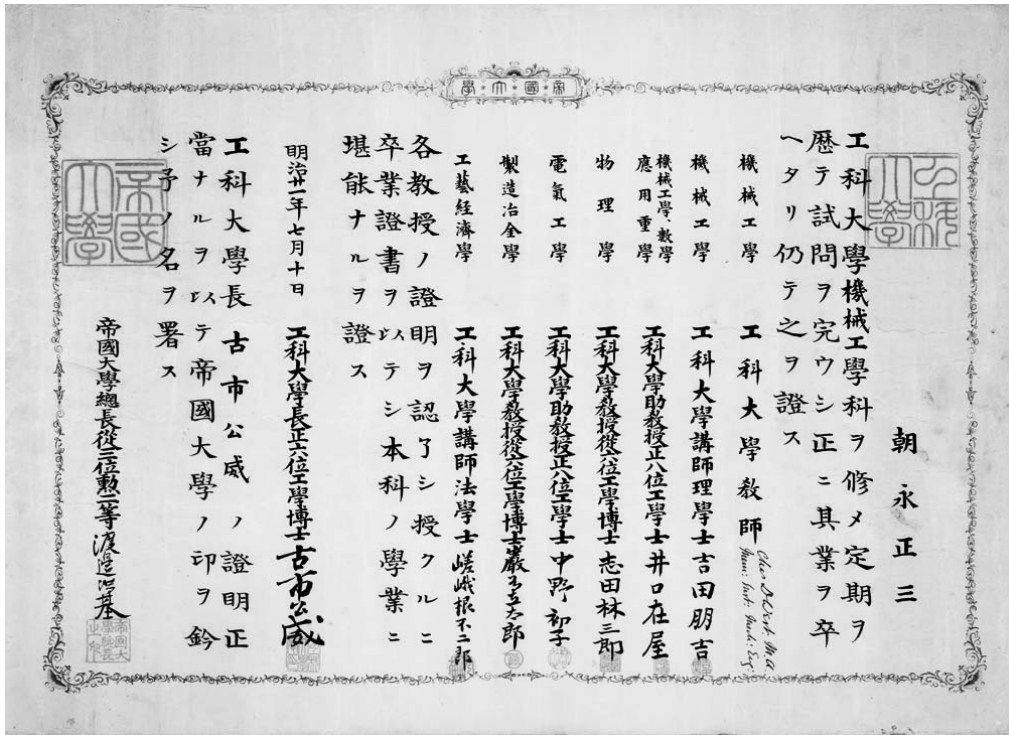 帝國大學
朝永正三
工科大學機械工學科ヲ修メ定期ヲ
歷テ試問ヲ完ウシ正ニ其業ヲ卒
ヘタリ仍テ之ヲ證ス
機械工學 工科大學教師 Chas. D. West. M.A. Mem: Inst: Mech: Eng
機械工學 工科大學講師理學士吉田朋吉
機械工學、數學 應用重學 工科大學助教授正八位工學士井口在屋
物理學 工科大學教授從六位工學博士志田林三郎
電氣工學 工科大學助教授正八位工學士中野初子
製造冶金學 工科大學教授從六位工學博士巖谷立太郎
工藝經濟學 工科大學講師法學士嵯峨根不二郎
各教授ノ證明ヲ認了シ授クルニ
卒業證書ヲ以テシ本科ノ學業ニ
堪能ナルヲ證ス
明治廿一年七月十日 工科大學長正六位工學博士古市公威
工科大學長古市公威ノ證明正
當ナルヲ以テ帝國大學ノ印ヲ鈐
シ予ノ名ヲ署ス
帝國大學總長從三位勲二等渡邊洪基
工科大學
帝國大學